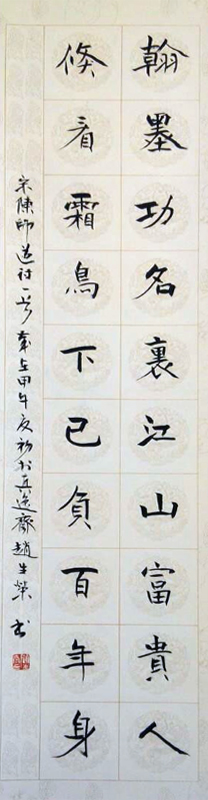 翰墨功名裏江山富貴人
倏看霜鳥下已負百年身
宋陳師道詩一首歲在甲午夏初於真逸齋趙生榮書